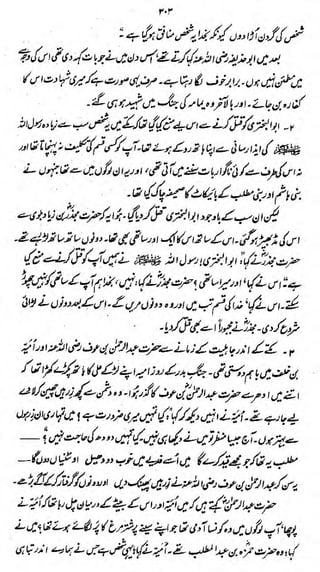 ۳۰۳
شخص کی گردن اڑا دوں کیونکہ بخدا یہ شخص منافق ہو گیا ہے“
بعد میں ابو حذیفہ رضی اللہ عنہ کہا کرتے تھے ’اس دن میں نے جو بات کہہ دی تھی اس کی وجہ سے
میں مطمئن نہیں ہوں۔ برابر خوف لگا رہتا ہے۔ صرف یہی صورت ہے کہ میری شہادت اس کا
کفارہ بن جائے۔ اور بالآخر وہ یمامہ کی جنگ میں شہید ہو ہی گئے۔
۲۔ ابوالبختری کو قتل کرنے سے اس لیے منع کیا گیا تھا کہ مکے میں یہ شخص سب سے زیادہ رسول اللہ
ﷺ کی ایذا رسانی سے اپنا ہاتھ روکے ہوئے تھا۔ آپ کو کسی قسم کی تکلیف نہ پہنچاتا تھا اور
نہ اس کی طرف سے کوئی ناگوار بات سننے میں آتی تھی، اور یہ ان لوگوں میں سے تھا جنہوں نے
بنی ہاشم اور بنی مطلب کے بائیکاٹ کا صحیفہ چاک کیا تھا۔
لیکن ان سب کے باوجود ابوالبختری قتل کر دیا گیا۔ ہوا یہ کہ حضرت مجذر بن زیاد بلوی سے
اس کی مڈبھیڑ ہو گئی۔ اس کے ساتھ اس کا ایک اور ساتھی بھی تھا۔ دونوں ساتھ ساتھ لڑ رہے تھے۔
حضرت مجذر نے کہا: ’ابوالبختری! رسول اللہ ﷺ نے ہمیں آپ کو قتل کرنے سے منع کیا
ہے‘ اس نے کہا ’اور میرا ساتھی؟‘ حضرت مجذر نے کہا، ’نہیں، بخدا ہم آپ کے ساتھی کو نہیں چھوڑ
سکتے۔ اس نے کہا ’خدا کی قسم تب میں اور وہ دونوں مریں گے۔ اس کے بعد دونوں نے لڑائی
شروع کر دی۔ مجذر نے مجبوراً اسے بھی قتل کر دیا۔
۳۔ مکے کے اندر جاہلیت کے زمانے سے حضرت عبدالرحمٰن بن عوف رضی اللہ عنہ اور امیہ
بن خلف میں باہم دوستی تھی۔ جنگ بدر کے روز امیہ اپنے لڑکے علی کا ہاتھ پکڑے کھڑا تھا کہ
اتنے میں ادھر سے حضرت عبدالرحمٰن بن عوف کا گذر ہوا۔ وہ دشمن سے کچھ زرہیں چھین کر لادے
لیے جا رہے تھے۔ امیہ نے انہیں دیکھ کر کہا ’کیا تمہیں میری ضرورت ہے؟ میں تمہاری ان زرہوں
سے بہتر ہوں۔ آج جیسا منظر تو میں نے دیکھا ہی نہیں۔ کیا تمہیں دودھ کی حاجت نہیں؟ —
مطلب یہ تھا کہ جو مجھے قید کرے گا میں اسے فدیے میں خوب دودھیل اونٹنیاں دوں گا —
یہ سن کر عبدالرحمٰن بن عوف رضی اللہ عنہ نے زرہیں پھینک دیں اور دونوں کو گرفتار کر کے آگے بڑھے۔
حضرت عبدالرحمٰن کہتے ہیں کہ میں امیہ اور اس کے بیٹے کے درمیان چل رہا تھا کہ امیہ نے
پوچھا ’آپ لوگوں میں وہ کونسا آدمی تھا جو اپنے سینے پر شتر مرغ کا پر لگائے ہوئے تھا؟‘ میں نے
کہا، وہ حضرت حمزہ بن عبدالمطلب تھے۔ امیہ نے کہا، یہی شخص ہے جس نے ہمارے اندر تباہی